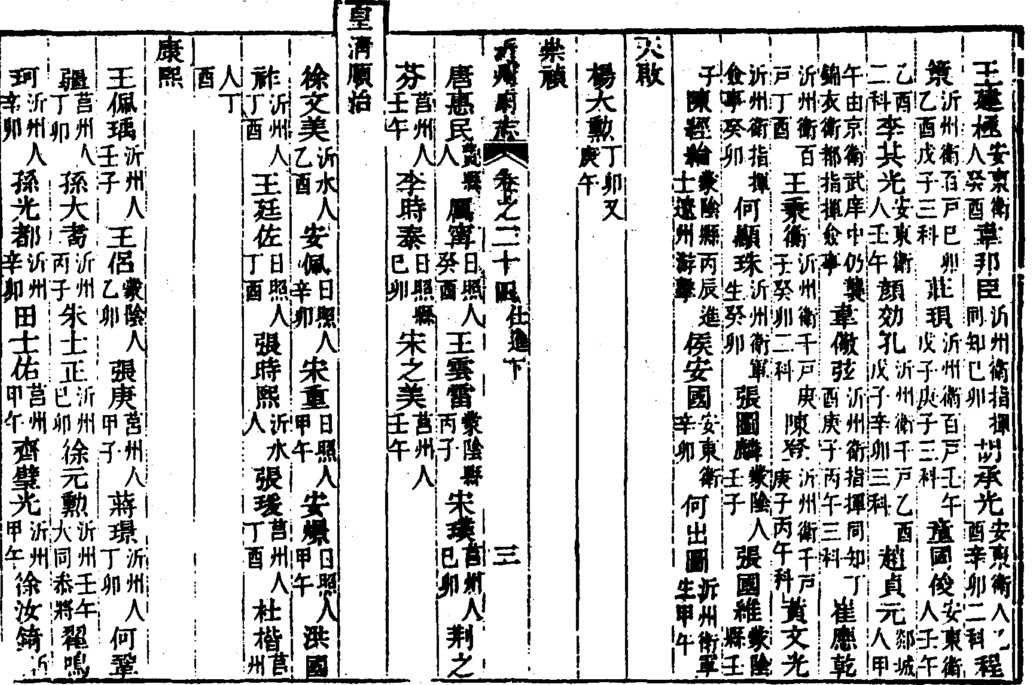 王建極安東衛人癸酉韋邦臣沂州衛指揮同知己卯胡承光安東衛人乙酉辛卯二科程
策沂州衛百戶己卯乙酉戊子三科莊現沂州衛百戶壬午戊子庚子三科童國俊安東衛人壬午
乙酉二科李其光安東衛人壬午顏効孔沂州衛千戶乙酉戊子辛卯三科趙貞元郯城人甲
午由京衛武庠中仍襲錦衣衛都指揮僉事韋儆弦沂州衛指揮同知丁酉庚子丙午三科崔應乾
沂州衛百戶丁酉王秉衡沂州衛千戶庚子癸卯二科陳登沂州衛千戶庚子丙午科黃文光
沂州衛指揮僉事癸卯何顯珠沂州衛軍生癸卯張圖麟蒙陰人壬子張國維蒙陰縣壬
子陳經綸蒙陰縣丙辰進士遼州游擊侯安國安東衛辛卯何出圖沂州衛軍生甲午
天啟
楊大勳丁卯又庚午
崇禎
沂州府志 卷之二十四 仕進下 三
唐惠民莒縣人厲寧日照人癸酉王雲雷蒙陰縣丙子宋璞莒州人己卯荆之
芬莒州人壬午李時泰日照縣己卯宋之美莒州人壬午
皇清順治
徐文美沂水人乙酉安佩日照人辛卯宋重日照人甲午安爆日照人甲午洪國
祚沂州人丁酉王廷佐日照人丁酉張時熙沂水人張瑗莒州人丁酉杜楷莒州
人丁酉
康熙
王佩瑀沂州人壬子王侶蒙陰人乙卯張庚莒州人甲子蔣璟沂州人丁卯何鞏
疆莒州人丁卯孫大耉沂州丙子朱士正沂州己卯徐元勳沂州壬午大同叅將翟鳴
珂沂州人辛卯孫光都沂州辛卯田士佑莒州甲午齊璧光沂州甲午徐汝錡沂